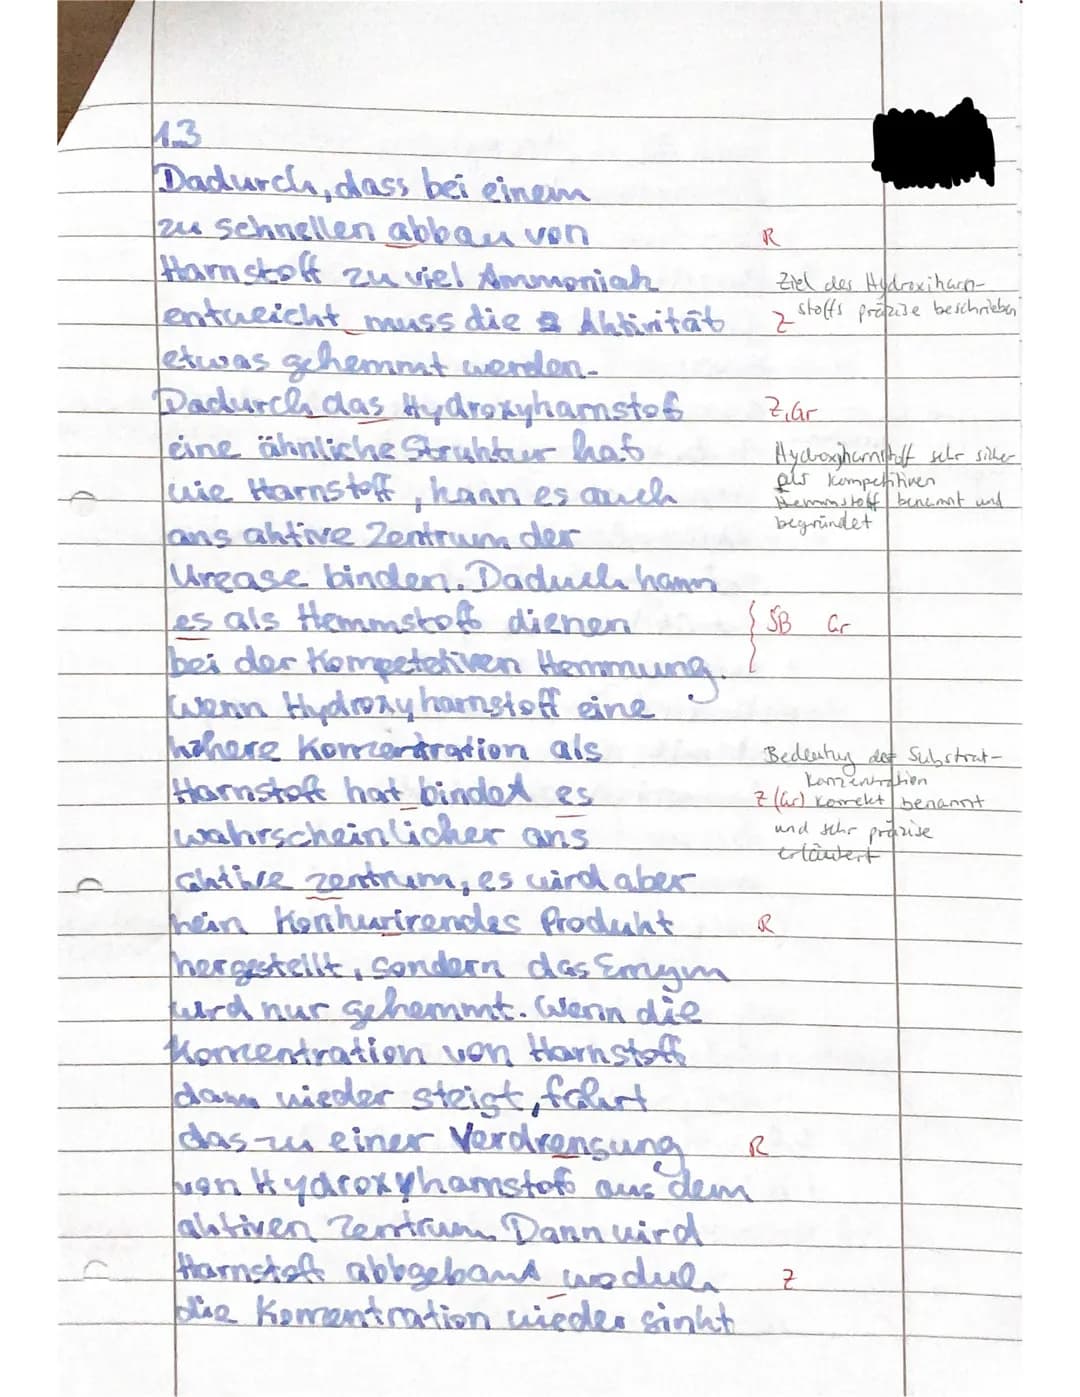 1.3
Dadurch, dass bei einem
zu schnellen abbau von
R
Harnstoff zu viel Ammoniak
Ziel des Hydroxiharn-
stoffs präzise beschrieben
entweicht muss die Aktivität
Z
etwas gehemmt werden.
Dadurch das Hydroxyharnstoff
Z, Gr
eine ähnliche Struktur hat
Hydroxyharnstoff sehr sicher
wie Harnstoff, kann es auch
als kompetitiven
Hemmstoff benannt und
begründet
ans aktive Zentrum der
Urease binden. Daduch kann
es als Hemmstoff dienen
SB Gr
bei der Kompetetiven Hemmung.
Wenn Hydroxyharnstoff eine
höhere Konzentration als
Bedeutung der Substrat-
konzentration
Harnstoff hat bindet es
Z (Gr) korrekt benannt
wahrscheinlicher ans
und sehr präzise
erläutert
aktive zentrum, es wird aber
kein Konkurirendes Produkt
R
hergestellt, sondern das Emzym
wird nur gehemmt. Wenn die
Konzentration von Harnstoff
dann wieder steigt, führt
das zu einer Verdrengung
R
von Hydroxyharnstoff aus dem
aktiven Zentrum. Dann wird
Harnstoff abbgebaut woduch
Z
die Konzentration wieder sinkt